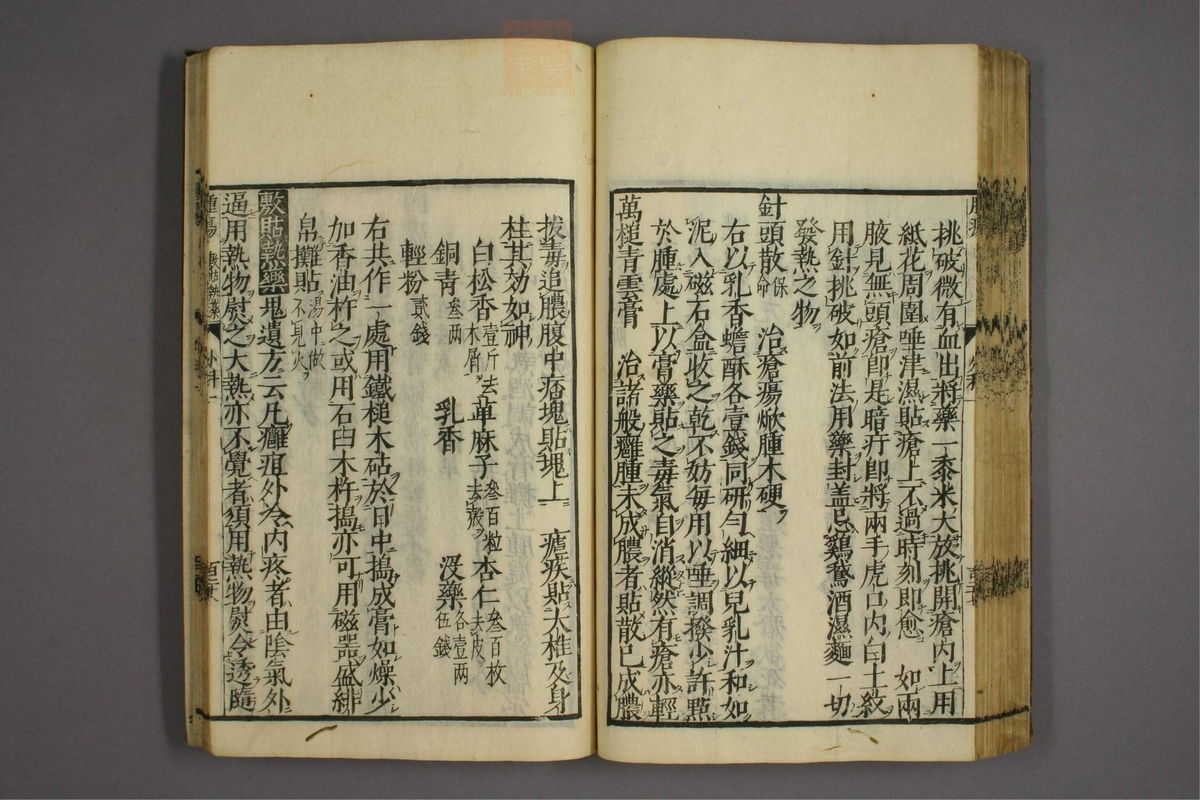 挑破微有血出將藥一黍米大放挑開瘡内上用
紙花周圍唾津濕貼瘡上不過時刻即愈　如兩
腋見無頭瘡即是暗疔即將兩手虎口内白土紋
用針挑破如前法用藥封盖忌雞鵞酒濕麵一切
發熱之物
針頭散保命　治瘡瘍焮腫木硬
右以乳香蟾酥各壹錢同研勻細以兒乳汁和如
泥入磁石盒收之乾不妨毎用以唾調撥少許㸃
於腫處上以膏藥貼之毒氣自消縱然有瘡亦輕
萬槌青雲膏　治諸般癰腫未成膿者貼散已成膿
拔毒追膿腹中痞塊貼塊上　瘧疾貼大椎及身
柱其効如神
白松香壹斤去木屑　萆麻子叁百粒去殻　杏仁叁百枚去皮
銅青叁两　乳香　没藥各壹两伍錢
輕粉貳錢
右共作一處用鐵槌木砧於日中搗成膏如燥少
加香油杵之或用石臼木杵搗亦可用磁器盛緋
帛攤貼湯中做不見火
敷貼熱藥　鬼遺方云凡癰疽外冷内疼者由陰氣外
逼用熱物慰之大熱亦不覺者須用熱物慰令透隨
腫瘍　敷貼熱藥　外科一